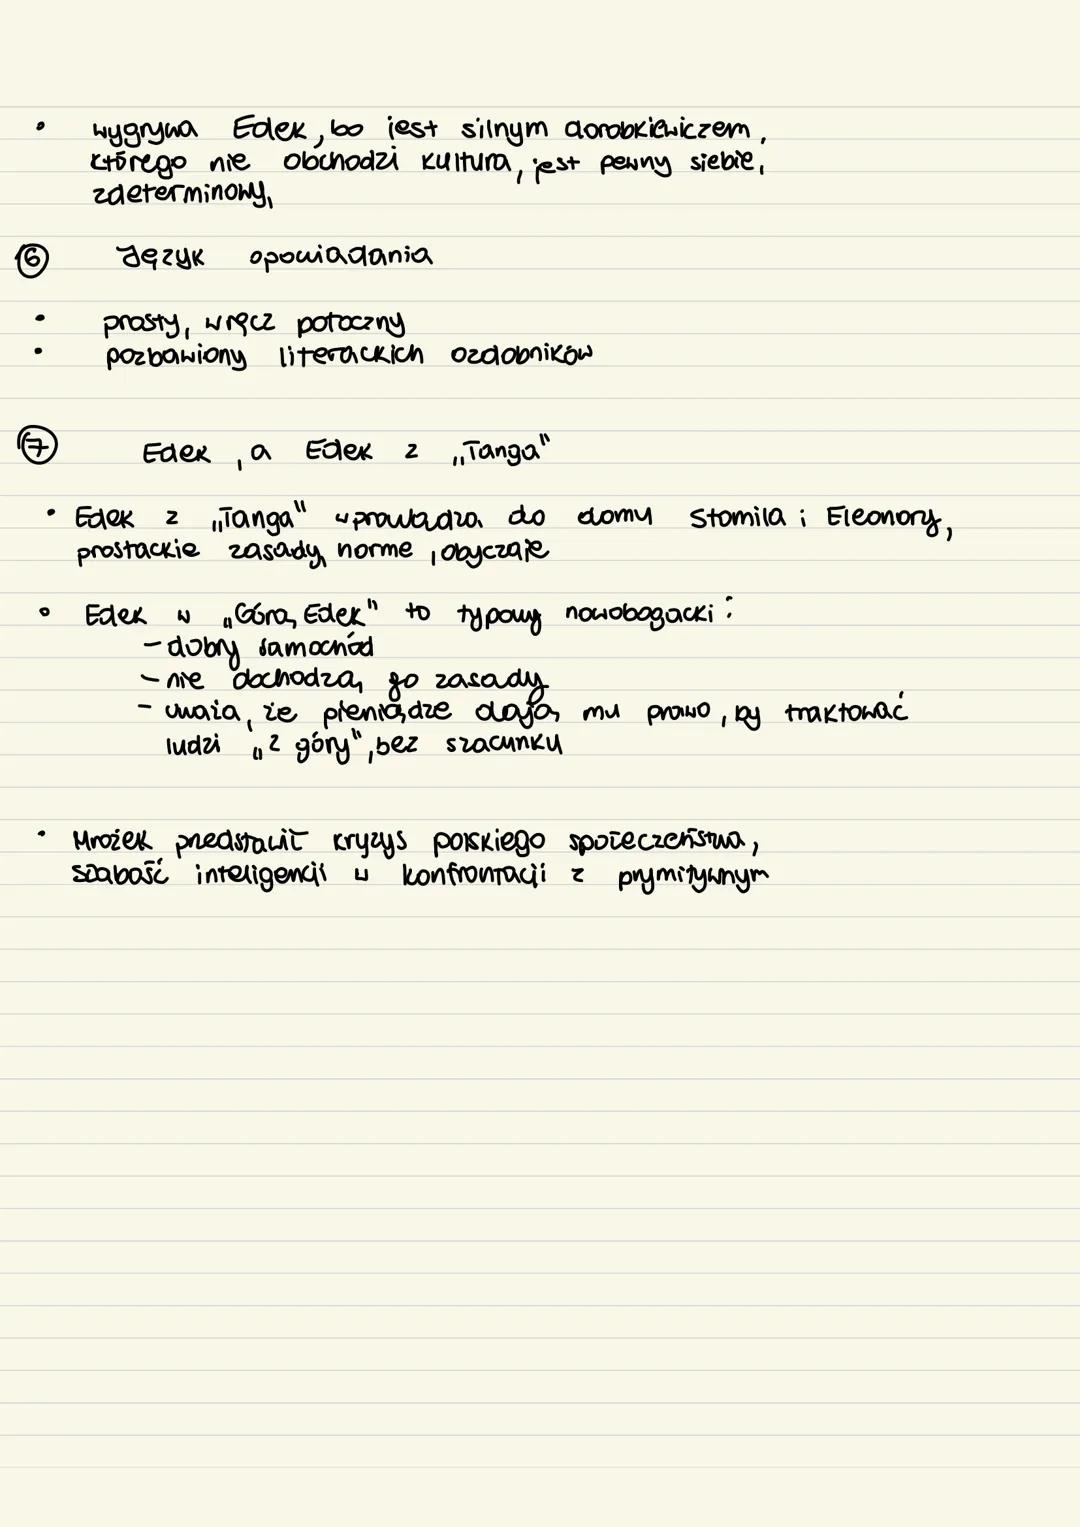 • wygrywa Edek, bo jest silnym dorobkiewiczem,
którego nie obchodzi kultura, jest pewny siebie,
zdeterminowy,
⑥ Język opowiadania
• prosty, wręcz potoczny
• pozbawiony literackich ozdobników
⑦ Edek, a Edek z „Tanga"
• Edek z „Tanga" wprowadza do domu Stomila i Eleonory,
prostackie zasady, norme, obyczaje
• Edek w „Górą Edek" to typowy nowobogacki:
- dobry samochód
- nie dochodzą go zasady
- uważa, że pieniądze dają mu prawo, by traktować
ludzi „z góry", bez szacunku
• Mrożek predstawił kryzys polskiego społeczeństwa,
słabość inteligencji w konfrontacji z prymitywnym